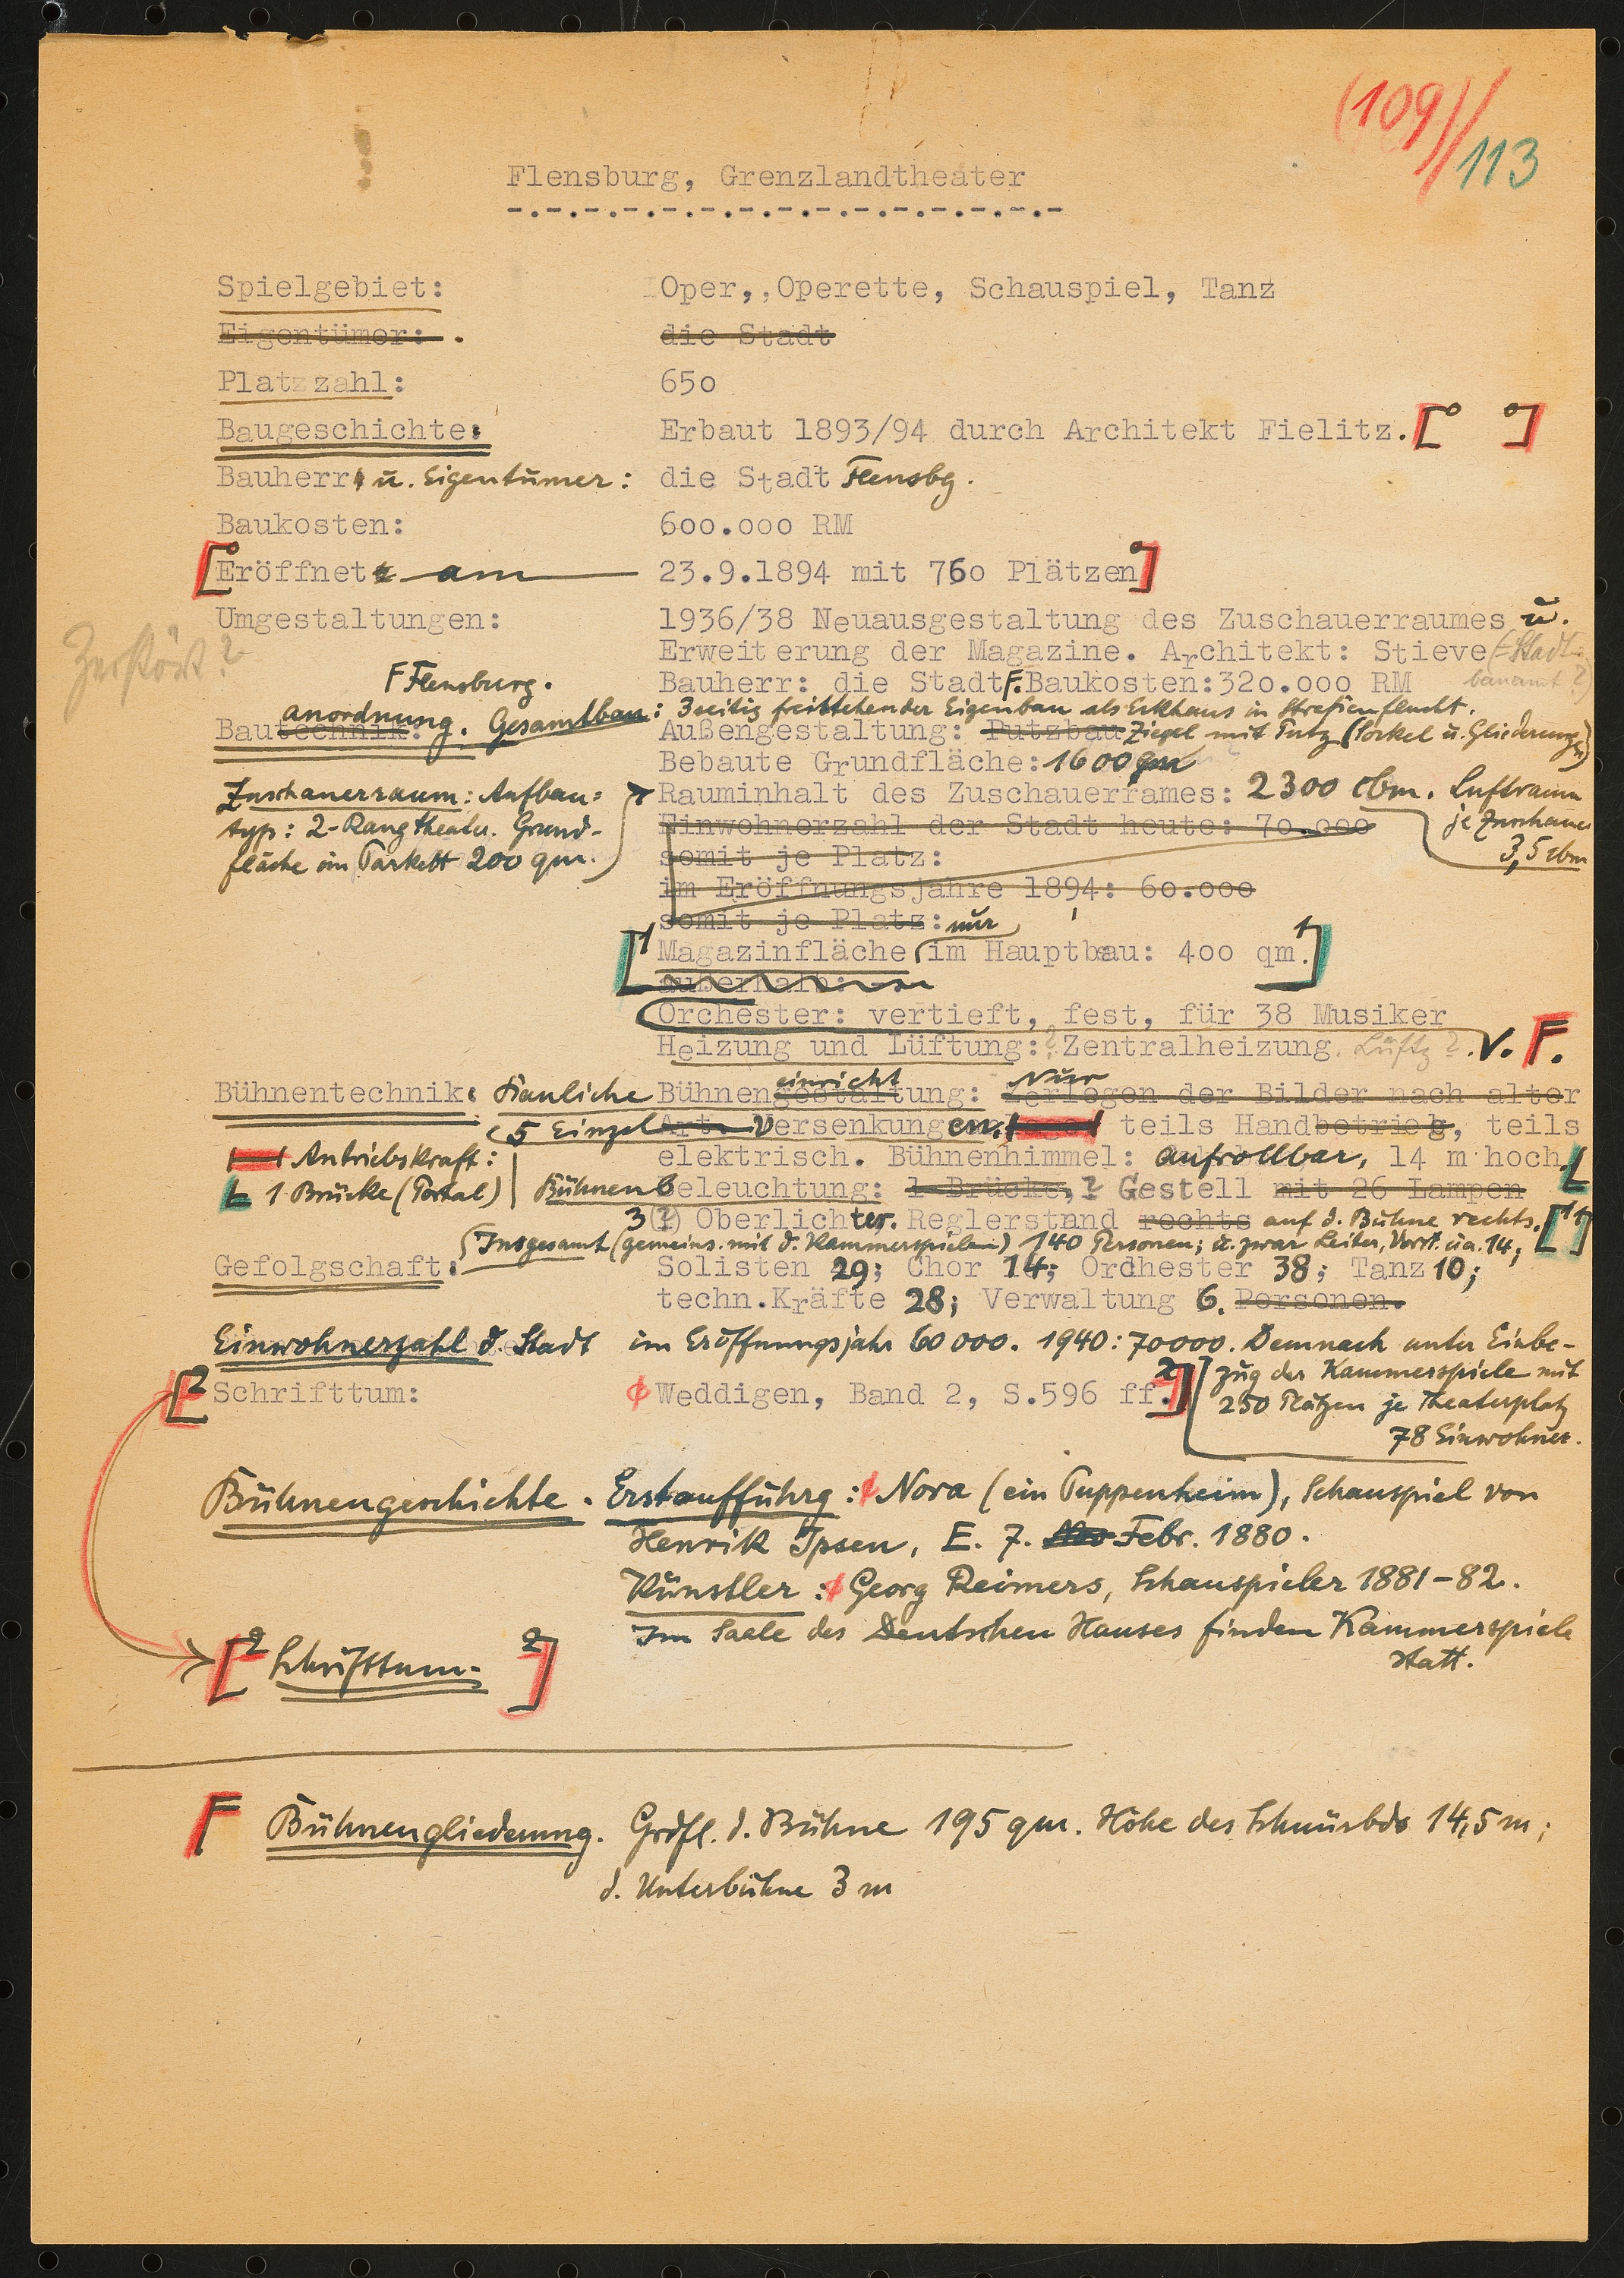 (109)//113
Flensburg, Grenzlandtheater
-.-.-.-.-.-.-.-.-.-.-.-.-.-.-
Spielgebiet: Oper,,Operette, Schauspiel, Tanz
Eigentümer: . die Stadt
Platzzahl: 65o
Baugeschichte: Erbaut 1893/94 durch Architekt Fielitz. [° °]
Bauherr u. Eigentümer: die Stadt Flensbg.
Baukosten: 6oo.ooo RM
[° Eröffnet am 23.9.1894 mit 760 Plätzen °]
Umgestaltungen: 1936/38 Neuausgestaltung des Zuschauerraumes u.
Zerstört? Erweiterung der Magazine. Architekt: Stieve (= Stadt-
bauamt ?)
F Flensburg. Bauherr: die Stadt F. Baukosten:32o.ooo RM
Bautechnik: anordnung. Gesamtbau: 3seitig freistehender Eigenbau als Eckhaus in Straßenflucht.
Außengestaltung: Putzbau Ziegel mit Putz (Sockel u. Gliederungen)
Bebaute Grundfläche: 1600 qm
Zuschauerraum: Aufbau=
typ: 2-Rang theater. Grund-
fläche im Parkett 200 qm.
Rauminhalt des Zuschauerrames: 2300 cbm. Luftraum
je Zuschauer
3,5 cbm
Einwohnerzahl der Stadt heute: 7o.ooo
somit je Platz:
im Eröffnungsjahre 1894: 6o.ooo
somit je Platz: nur
[1 Magazinfläche im Hauptbau: 4oo qm. 1]
außerhalb: --
Orchester: vertieft, fest, für 38 Musiker
Heizung und Lüftung:? Zentralheizung. Lüftg ?. V. F.
Bühnentechnik: Bauliche Bühnengestaltung: einricht Nur Zerlegen der Bilder nach alter
(5 Einzel Art. Versenkungen. teils Handbetrieb, teils
Antriebskraft: elektrisch. Bühnenhimmel: aufrollbar, 14 m hoch.
1 Brücke (Portal) Bühnenbeleuchtung: 1 Brücke, ? Gestell mit 26 Lampen
3 (?) Oberlichter. Reglerstnnd rechts auf d. Bühne rechts. [1 1]
Insgesamt (gemeins. mit d. Kammerspielen) 140 Personen; u. zwar Leiter, Vorst. u.a. 14;
Gefolgschaft: Solisten 29; Chor 14; Ordhester 38; Tanz 10;
techn.Kräfte 28; Verwaltung 6. Personen.
Einwohnerzahl d. Stadt im Eröffnungsjahr 60 000. 1940: 70000. Demnach unter Einbe-
zug der Kammerspiele mit
250 Plätzen je Theaterplatz
78 Einwohner.
[2 Schrifttum: Weddigen, Band 2, S.596 ff. 2]
Bühnengeschichte. Erstaufführg: Nora (ein Puppenheim), Schauspiel von
Henrik Ipsen, E. 7. Febr. 1880.
Künstler: Georg Reimers, Schauspieler 1881-82.
Im Saale des Deutschen Hauses finden Kammerspiele
statt.
[2 Schrifttum. 2]
F Bühnengliederung. Grdfl. d. Bühne 195 qm. Höhe des Schnürbds 14,5 m;
d. Unterbühne 3 m